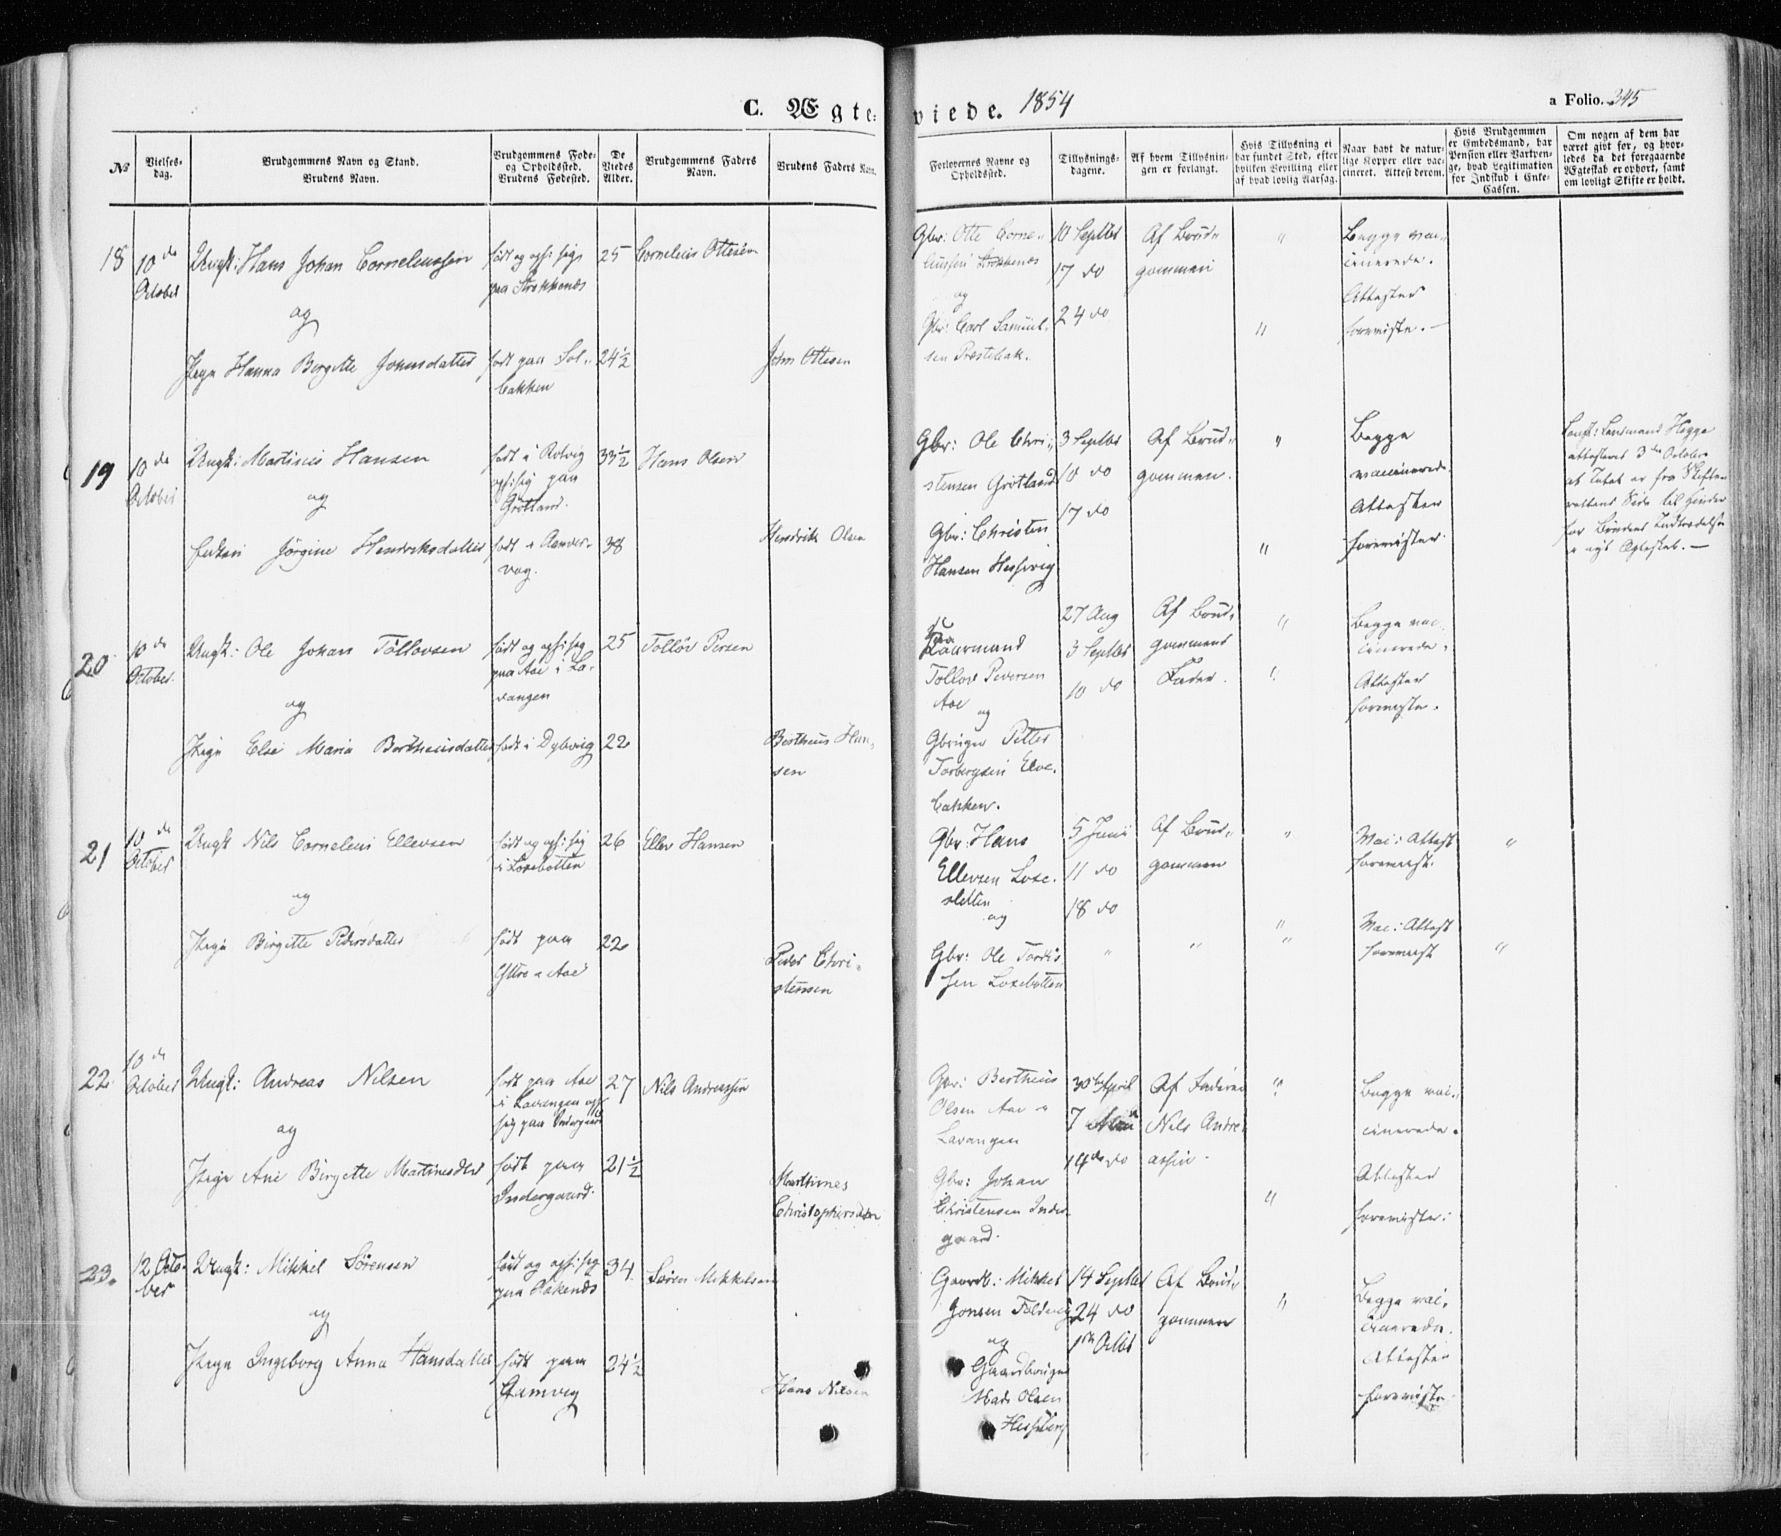 C. Ægteviede. 1854
a Folio. 345
No
Vielsesdag.
Brudgommens Navn og Stand.
Brudens Navn.
Brudgommens Fødeog Opholdssted.
Brudens Fødested.
De Viedes Alder.
Brudgommens Faders Navn.
Brudens Faders Navn.
Forlovernes Navne og Opholdssted.
Tillysningsdagene.
Af hvem Tillysningen er forlangt.
Hvis Tillysning ei har fundet Sted, efter hvilken Bevilling eller af hvad lovlig Aarsag.
Naar havt de naturlige Kopper eller vaccineret. Attest derom.
Hvis Brudgommen er Embedsmand, har Pension eller Vartpenge, hvad Legitimation for Indskud i Enke-Cassen.
Om nogen af dem har været givt før, og hvorledes da det foregaaende Ægteskab er ophørt, samt om lovligt Skifte er holdt.
18 10de October
Ungk: Hans Johan Corneliussen
født og oph: sig paa Strokkenæs
25 Cornelius Ottesen
og
Pige Hanna Bergitte Johnsdatter
født paa Solbakken
24½
John Ottesen
Gbr: Otte Corneliussen Strokkenæs
og
Gbr: Carl Samuelsen Prestebak.
10 Septbr
17 do
24 do
Af Brudgommen
"
"
Begge vaccinerede.
Attester
foreviste. —
19 10de October
Ungk: Martinus Hansen
født i Rotvig
oph: sig paa
Grøtland.
33½ Hans Olsen
og
Enken Jørgine Hendriksdatter
født i Aandervaag.
38
Hendrik Olsen
Gbr: Ole Christensen Grøtland
Gbr: Christen
Hansen Hessevig
3 Septbr
10 do
17 do
Af Brudgommen.
"
"
Begge
vaccinerede
Attester
forevister.
Const: Lensmand Hegge
attesteret 3die October
at Intet er fra Skifterettens Side til Hinder
for Brudens Indtrædelse
i nyt Ægteskab. —
20 10de October.
Ungk: Ole Johan Tollovsen
født og oph: sig
paa Aae i Lavangen
25 Tolløv Persen
og
Pige Else Maria Bertheusdatter
født i Dybvig
22
Bertheus Hansen
Tollov Pedersen
Aae
og
Gbruger Petter
Torbergsen Elvebakken.
27 Aug
3 Septbr
10 do
Af Brudgommens
Fader.
"
Begge vaccinerede.
Attester
foreviste.
21 10de October
Ungk Nils Cornelius Ellevsen
født og oph: sig
i Loxebotten
26 Ellev Hansen
og
Pige Birgitte Pedersdatter
født paa
Yttre Aae
22
Peder Christensen
Gbr: Hans
Ellevsen Loxesletten
og
Gbr: Ole Tordissen Loxebotten
5 Juni
11 do
18 do
"
Af Brudgommen
"
"
"
"
Vac: Attest
forevist.
Vac: Attest
forevist
"
"
22 10de October
Ungk: Andreas Nilsen
født paa Aae
i Lavangen oph:
sig paa Indergaard
27 Nils Andreassen
og
Pige Ane Birgitte Martinesdtr
født paa
Indergaard.
21½
Marthines
Christophersen
Gbr: Bertheus
Olsen Aae i
Lavangen
Gbr: Johan
Christensen Indergaard.
30te April
7 Mai
14de do
Af Faderen
Nils Andreassen.
"
"
Begge vaccinerede.
Attester
forevister.
23. 12 October
Ungk: Mikkel Sørensen
født og oph: sig
paa Hokenæs
34 Søren Mikkelsen
og
Pige Ingeborg Anna Hansdatter
født paa
Gamvig
24½
Hans Nilsen
Gaardb: Mikkel
Jonsen Foldvig
og
Gaardbruger
Mads Olsen
Hessberg
14 Septbr
24 do
1ste Octbr
Af Brudgommen
"
Begge vaccinerede.
Attester
foreviste